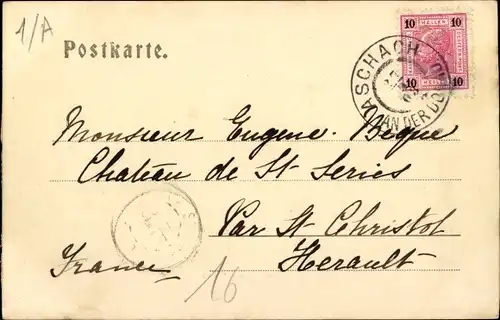 1/A
Postkarte.
10 HELLER 10
10 10
ASCHACH AN DER DONAU
Monsieur Eugene Bègue
Chateau de St Series
Par St Christol
France Herault
16